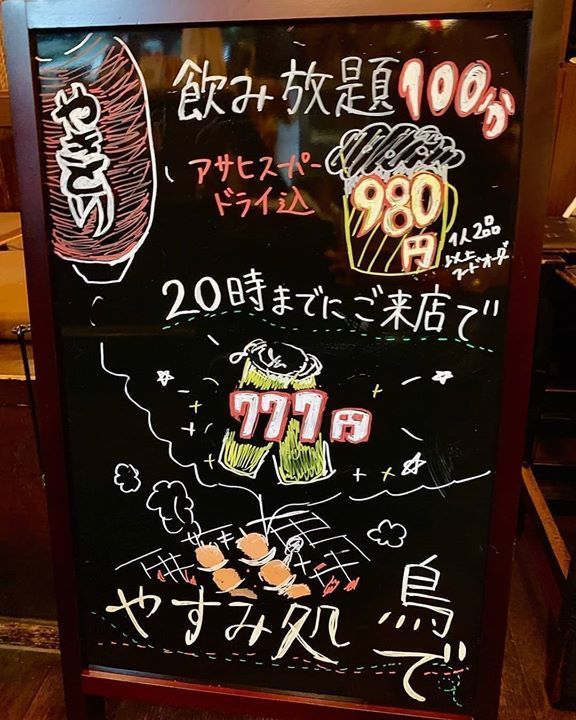 やきとり
飲み放題100分
アサヒスーパー
ドライ込
980
円
1人2品
以上
フードオーダー
20時までにご来店で
777円
やすみ処 鳥で